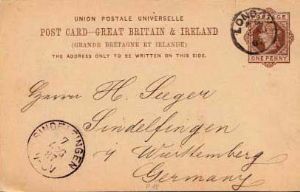 UNION POSTALE UNIVERSELLE
POST CARD—GREAT BRITAIN & IRELAND
(GRANDE BRETAGNE ET IRLANDE)
THE ADDRESS ONLY TO BE WRITTEN ON THIS SIDE.
POSTAGE
ONE PENNY
LONDON
Herrn H. Seeger
Sindelfingen
i/ Württemberg
Germany
SINDELFINGEN
7
NOV